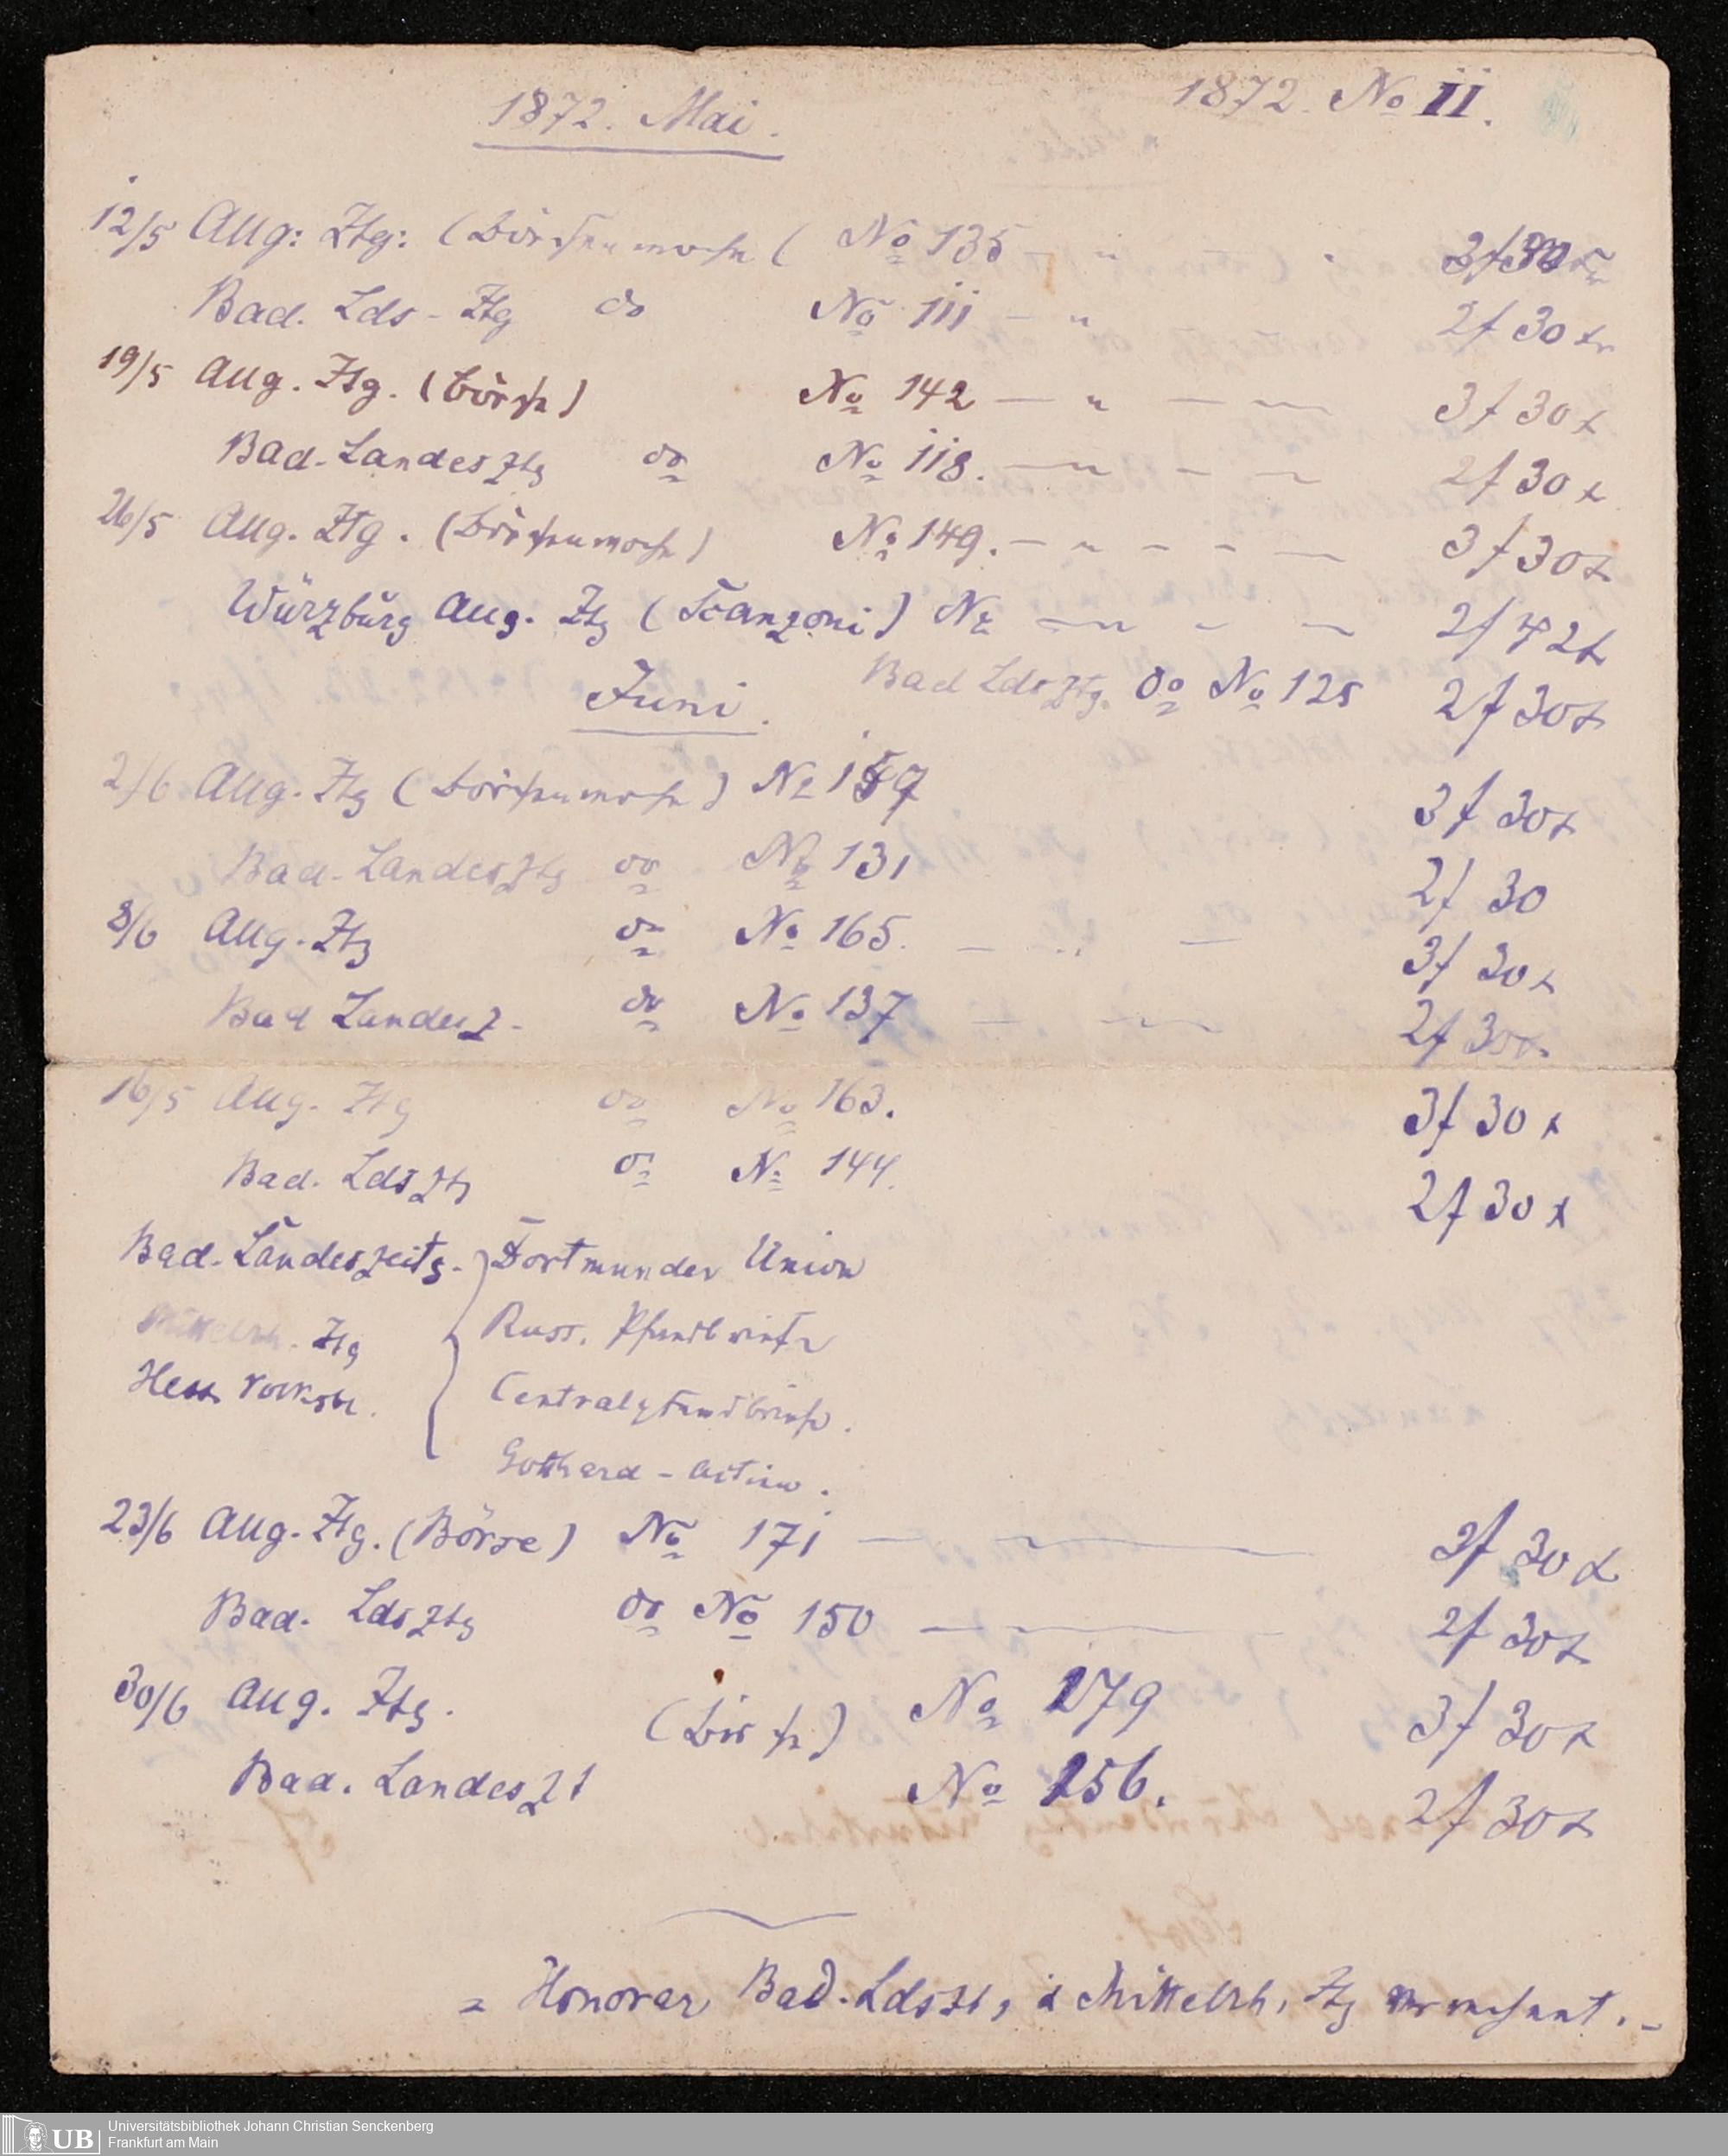 1872. No II.
1872. Mai.
12/5 Allg: Ztg: (Börsenwoche ( No 135 - " 3f 30 xr
Bad. Lds-Ztg do No 111 - " 2f 30 xr
19/5 Allg. Ztg. (Börse) No 142 — " — — 3f 30 x
Bad. Landesztg do No 118. — — — 2f 30 x
26/5 Allg. Ztg. (Börsenwoche) No 149. — — — — 3f 30 x
Würzburg Allg. Ztg (Scanzoni) No — — — 2f 42 x
Bad Ldsztg. do No 125 2f 30 x
Juni.
2/6 Allg. Ztg (Börsenwoche) No 157 3f 30 x
Bad. Landesztg do No 131 2f 30
8/6 Allg. Ztg do No 165. — " — 3f 30 x
Bad Landesz. do No 137 — — 2f 30 x
16/5 Allg. Ztg do No 163. 3f 30 x
Bad. Ldsztg do No 144. 2f 30 x
Bad. Landeszeitg. Dortmunder Union
Mittelrh. Ztg Russ. Pfandbriefe
Hess. Volksbl. Centralpfandbriefe.
Gotthard-Actien.
23/6 Allg. Ztg. (Börse) No 171 — — 3f 30 x
Bad. Ldsztg do No 150 — 2f 30 x
30/6 Allg. Ztg. (Börse) No 179 3f 30 x
Bad. Landeszt No 156. 2f 30 x
= Honorar Bad. Ldszt, u Mittelrh, Ztg verrechnet. -
UB Universitätsbibliothek Johann Christian Senckenberg
Frankfurt am Main